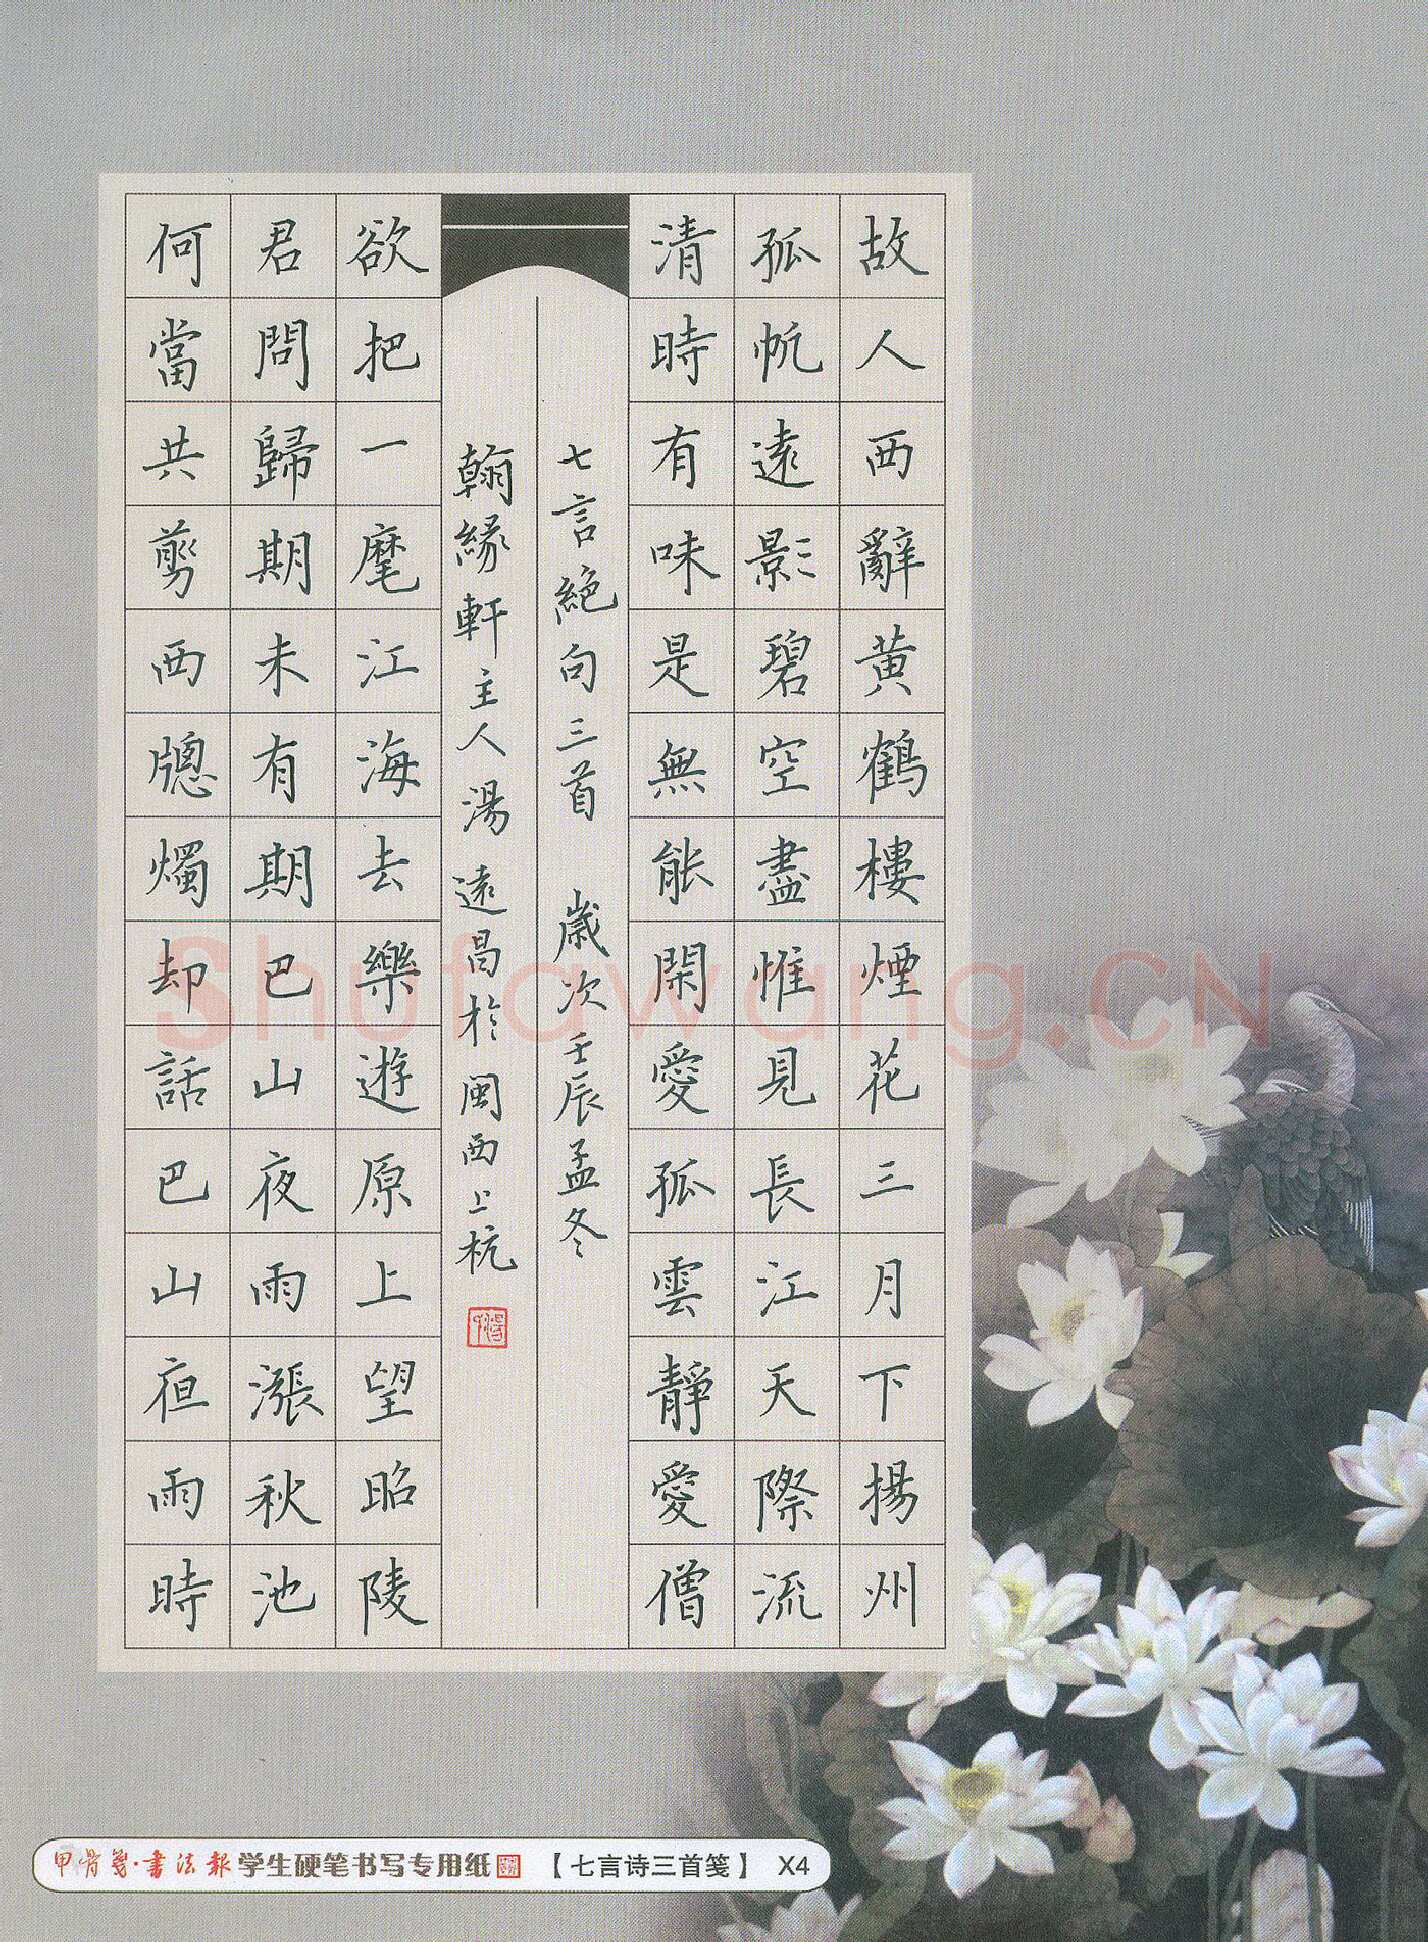 故人西辭黃鶴樓煙花三月下揚州
孤帆遠影碧空盡惟見長江天際流
清時有味是無能閑愛孤雲靜愛僧
七言絕句三首 歲次壬辰孟冬
翰緣軒主人湯遠昌於閩西上杭
欲把一麾江海去樂遊原上望昭陵
君問歸期未有期巴山夜雨漲秋池
何當共剪西牕燭却話巴山夜雨時
Shufawang.CN
甲骨箋·書法報学生硬笔书写专用纸【七言诗三首笺】 X4